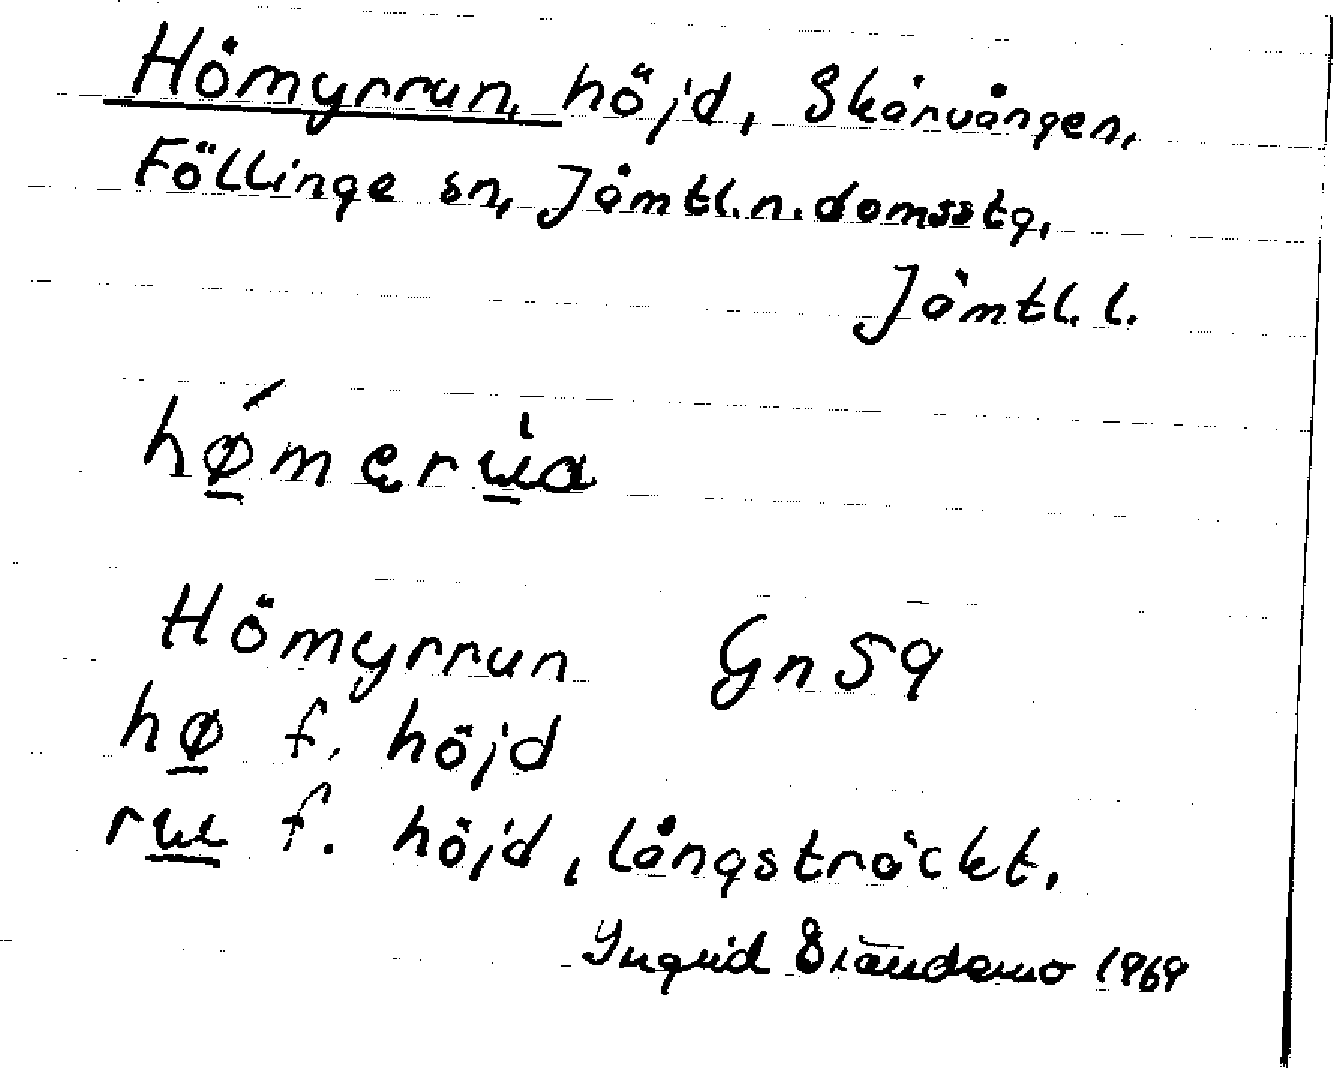 Hömyrrun, höjd, Skärvången,
Föllinge sn, Jämtl.n.domsstg,
Jämtl.l.
Hömyrrun Gn 59
hø f. höjd
f. höjd, långsträckt.
Ingrid 1969